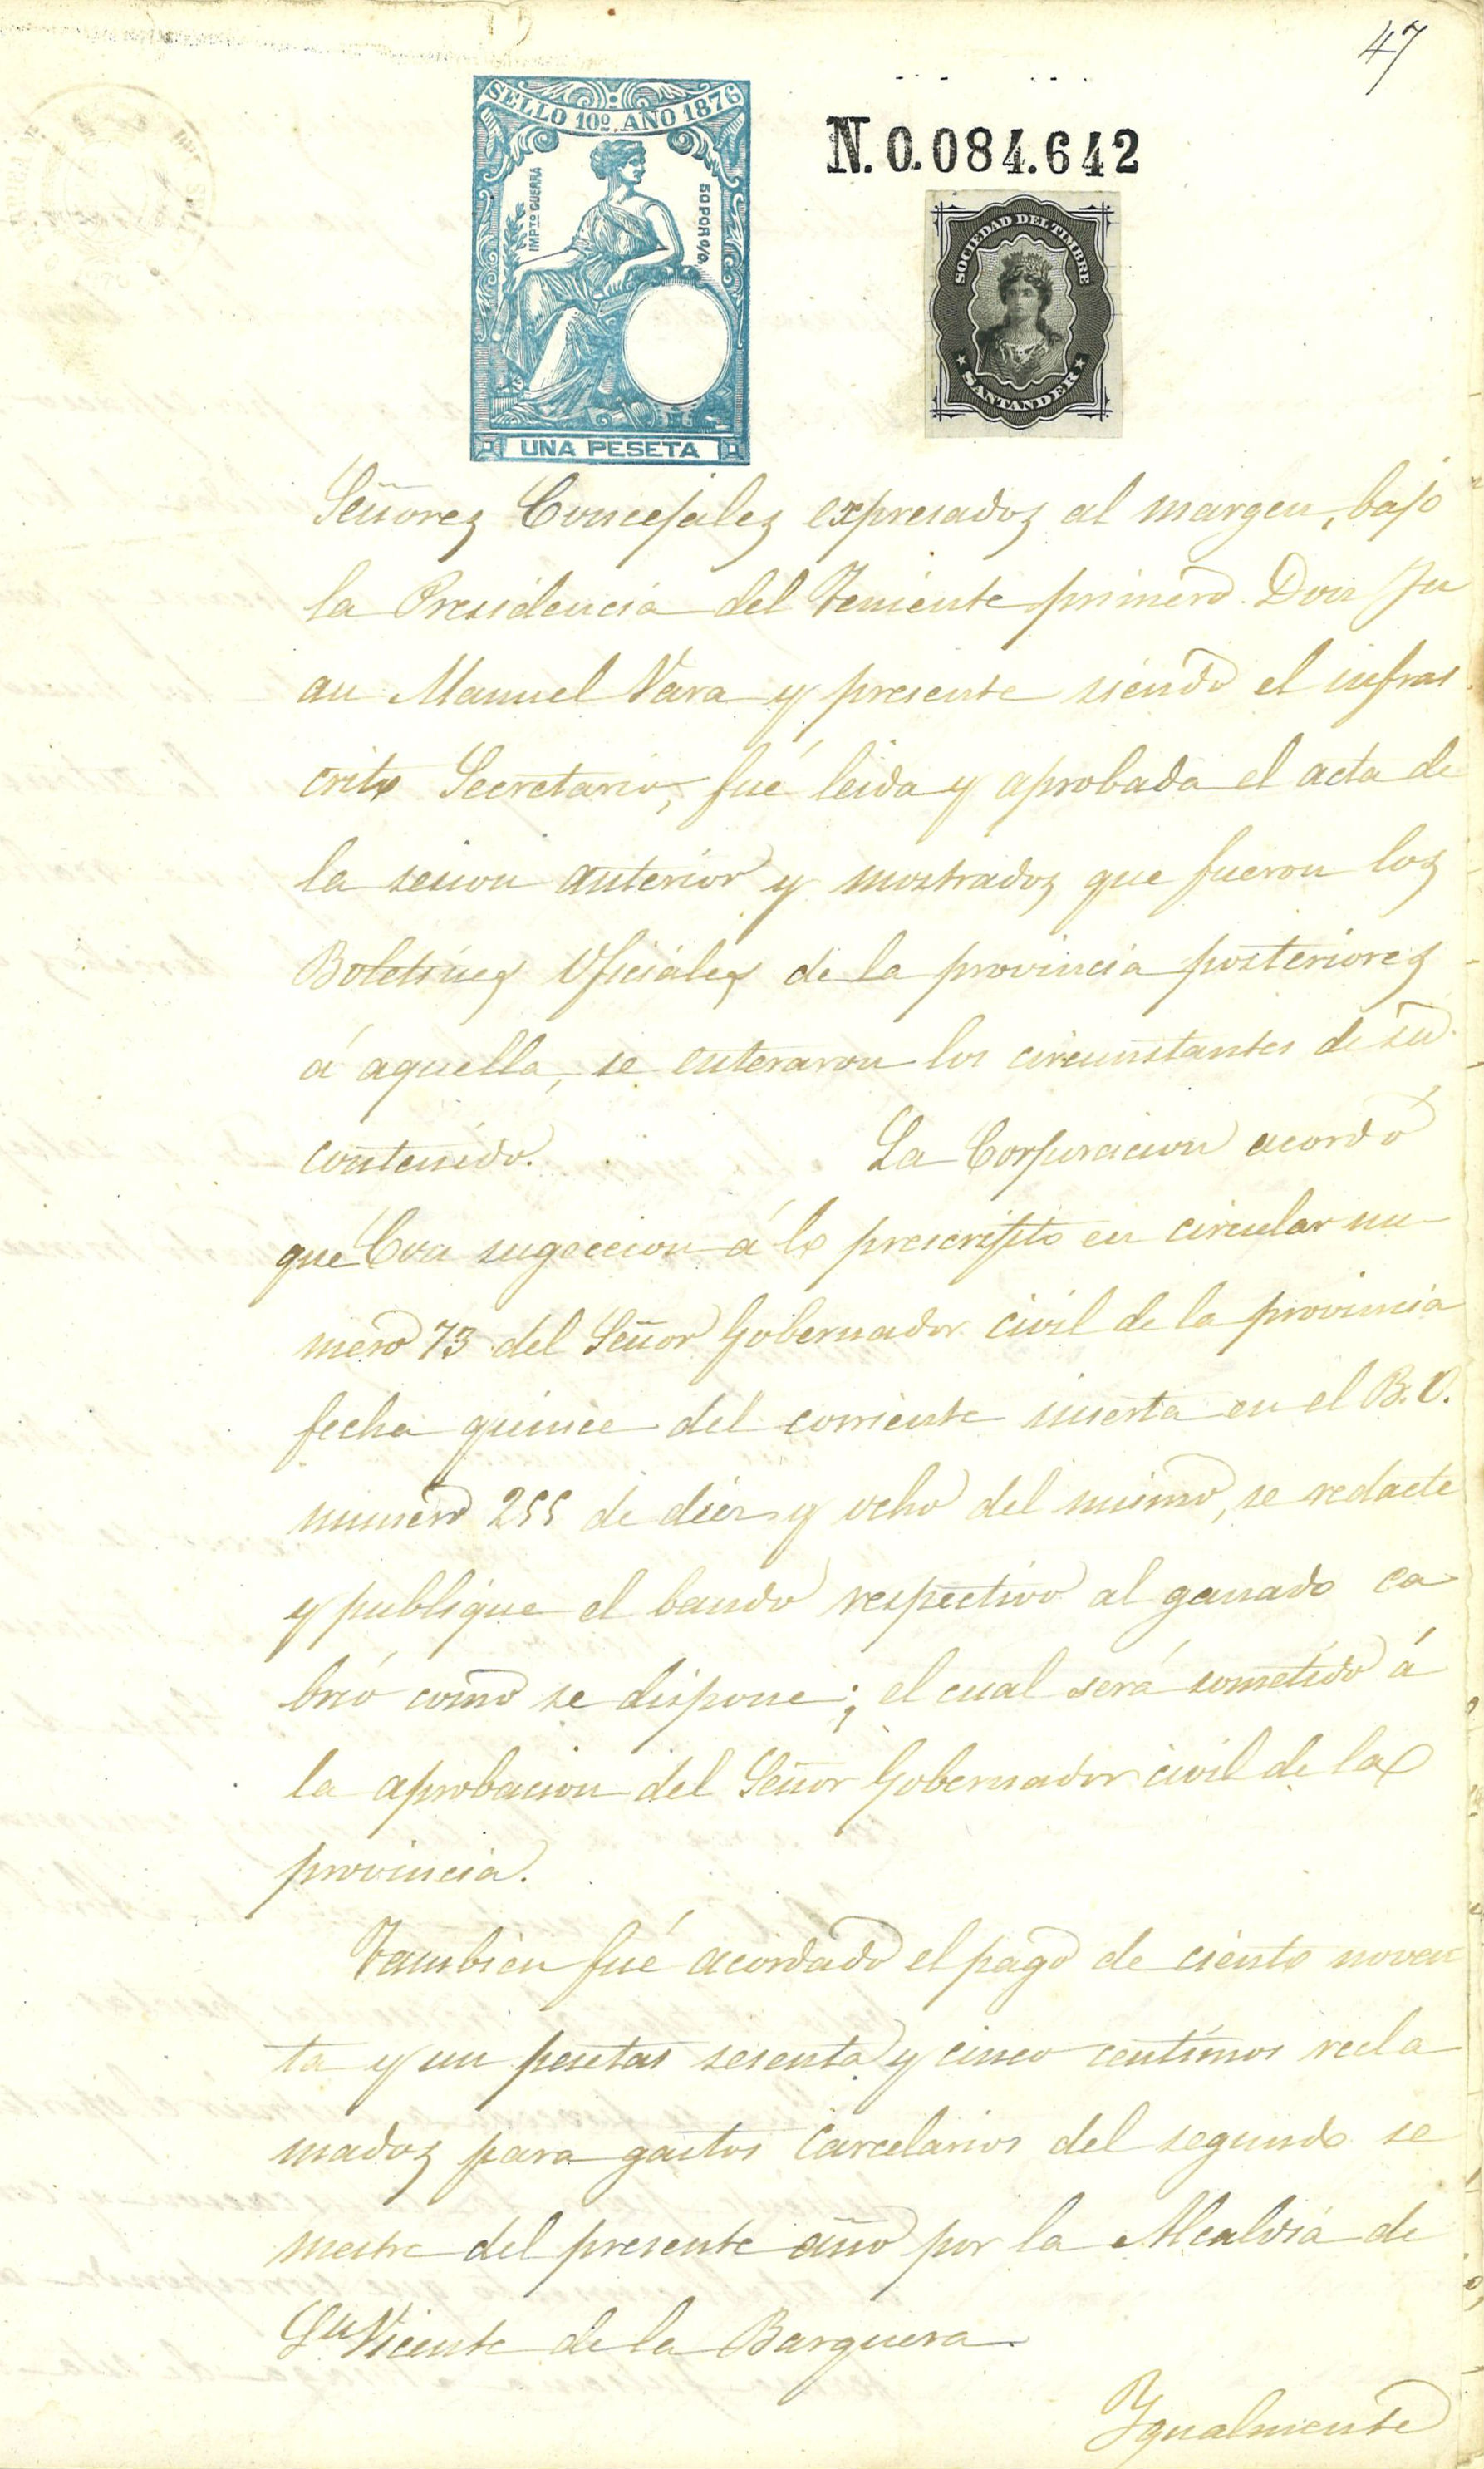 47
SELLO 10º. AÑO 1876
IMPTO GUERRA
50 POR o/o.
UNA PESETA
N. 0.084.642
SOCIEDAD DEL TIMBRE
SANTANDER
Señores Concejales expresados al margen, bajo
la Presidencia del Teniente primero Don Ju
an Manuel Vara y presente siendo el infras
crito Secretario, fué leida y aprobada el acta de
la sesion anterior y mostrados que fueron los
Boletines Oficiales de la provincia posteriores
á aquella, se enteraron los circunstantes de su
contenido. La Corporacion acordó
que Con sugeccion á lo prescripto en circular nu-
mero 73 del Señor Gobernador civil de la provincia
fecha quince del corriente inserta en el B. O.
numero 255 de diez y ocho del mismo, se redacte
y publique el bando respectivo al ganado ca
brio como se dispone; el cual será sometido á
la aprobacion del Señor Gobernador civil de la
provincia.
Tambien fué acordado el pago de ciento noven
ta y un pesetas sesenta y cinco centimos recla
mados para gastos Carcelarios del segundo se
mestre del presente año por la Alcaldia de
Sn Vicente de la Barquera.
Igualmente